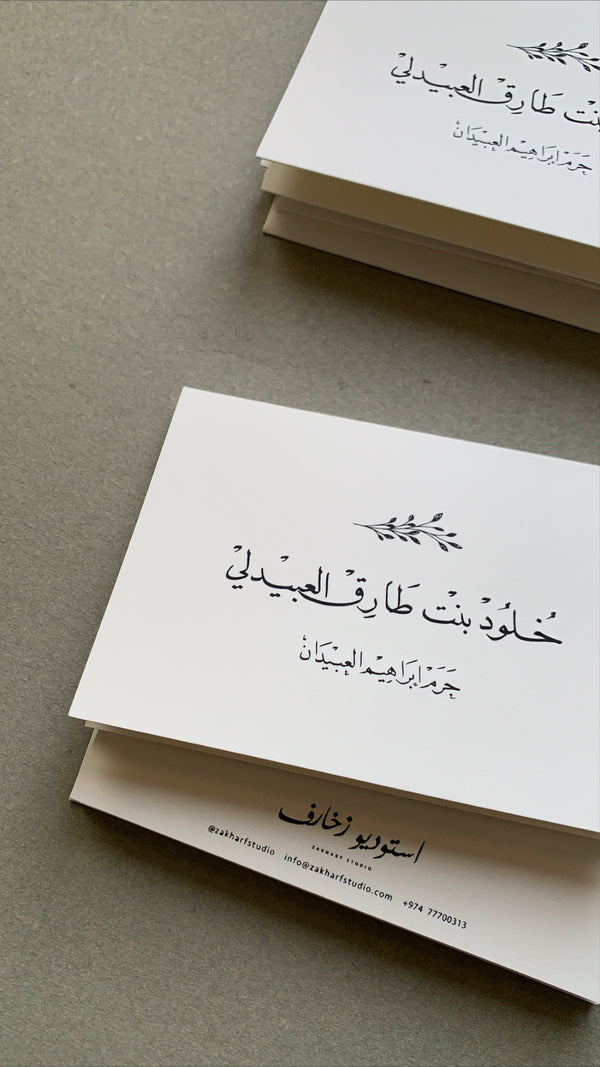 بنت طَارِق العبيدلي
حَرَم إبراهِيم العبيدَان
خُلُود بنت طَارِق العبيدلي
حَرَم إبراهِيم العبيدَان
استوديو زخارف
ZAKHARF STUDIO
@zakharfstudio info@zakharfstudio.com +974 77700313